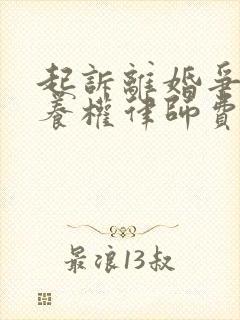 起訴離婚爭
養權律師費
最浪13叔